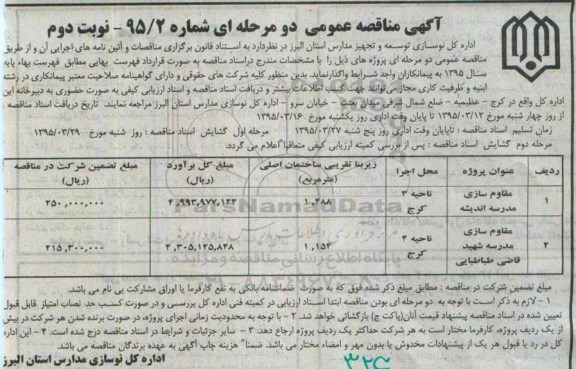 آگهی مناقصه عمومی دو مرحله ای شماره ۹۵/۲ - نوبت دوم
اداره کل نوسازی توسعه و تجهیز مدارس استان البرز در نظردارد به استناد قانون برگزاری مناقصات و آئین نامه های اجرایی آن و از طریق
مناقصه عمومی دو مرحله ای پروژه های ذیل را با مشخصات مندرج دراسناد مناقصه به صورت قرارداد فهرست بهایی مطابق فهرست بهاء پایه
سال ۱۳۹۵ به پیمانکاران واجد شرایط واگذارنماید. بدین منظور کلیه شرکت های حقوقی و دارای گواهینامه صلاحیت معتبر پیمانکاری در رشته
ابنیه و ظرفیت کاری مجاز می‌توانند جهت کسب اطلاعات بیشتر و دریافت اسناد مناقصه و اسناد ارزیابی کیفی به صورت حضوری به دبیرخانه این
اداره کل واقع در کرج - عظیمیه - ضلع شمال شرقی میدان مهران - خیابان سرو - اداره کل نوسازی مدارس استان البرز مراجعه نمایند. تاریخ دریافت اسناد مناقصه :
از روز چهار شنبه مورخ ۱۳۹۵/۰۳/۱۲ تا پایان وقت اداری روز یکشنبه مورخ ۱۳۹۵/۰۳/۱۶
زمان تسلیم اسناد مناقصه : تاپایان وقت اداری روز پنج شنبه ۱۳۹۵/۰۳/۲۷ مرحله اول گشایش اسناد مناقصه : روز شنبه مورخ ۱۳۹۵/۰۳/۲۹
مرحله دوم گشایش اسناد مناقصه : پس از بررسی کمیته ارزیابی کیفی متعاقبا"اعلام می گردد.
ردیف عنوان پروژه محل اجرا زیربنا تقریبی ساختمان اصلی (مترمربع) مبلغ کل برآورد (ریال) مبلغ تضمین شرکت در مناقصه (ریال)
۱ مقاوم سازی مدرسه اندیشه ناحیه ۳ کرج ۱,۴۸۸ ۴,۹۹۳,۹۷۷,۱۴۳ ۲۵۰,۰۰۰,۰۰۰
۲ مقاوم سازی مدرسه شهید قاضی طباطبایی ناحیه ۴ کرج ۱,۱۵۴ ۴,۳۰۵,۱۲۵,۸۳۸ ۲۱۵,۳۰۰,۰۰۰
مبلغ تضمین شرکت در مناقصه : مطابق مبلغ ذکر شده فوق که به صورت ضمانتنامه بانکی به نفع کارفرما یا اوراق مشارکت بی نام می باشد.
۱ - لازم به ذکر است با توجه به دو مرحله ای بودن مناقصه ابتدا اسناد ارزیابی در کمیته فنی اداره کل بررسی و در صورت کسب حد نصاب امتیاز قابل قبول
تعیین شده در اسناد مناقصه پیشنهاد قیمت آنان(پاکت ج) بازگشائی خواهد شد. ۲ - با توجه به محدودیت زمانی اجرای پروژه، در صورت برنده شدن هر شرکت در بیش
از یک ردیف پروژه، کارفرما مختار است به هر شرکت حداکثر یک ردیف پروژه ارجاع دهد. ۳ - سایر جزئیات و شرایط در اسناد مناقصه درج شده است. ۴ - این اداره
کل در رد یا قبول هر یک از پیشنهادات مخدوش یا بدون مهر و امضاء مختار می باشد. ضمنا" هزینه چاپ آگهی به عهده برندگان مناقصه می باشد.
اداره کل نوسازی مدارس استان البرز
ParsNamadData